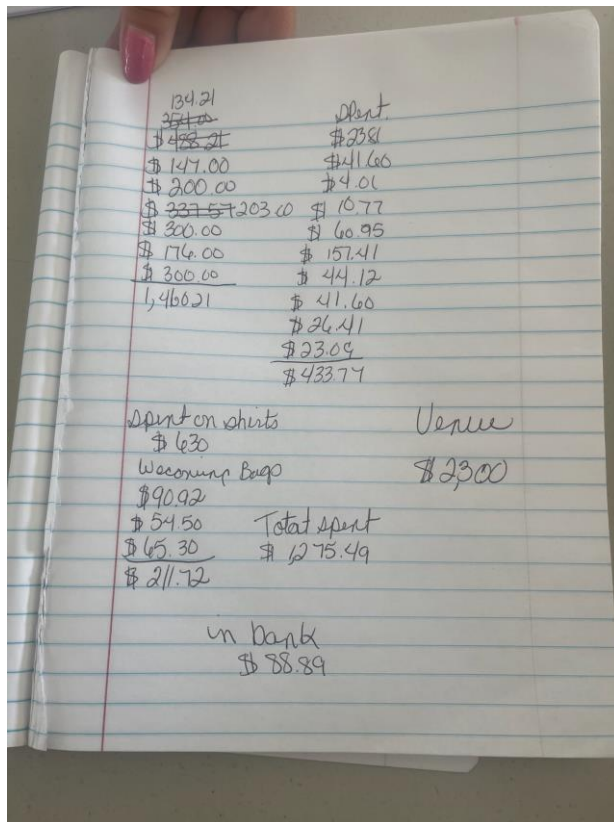 134.21
354.00
$ 488.21
$ 147.00
$ 200.00
$ 337.57 203.00
$ 300.00
$ 176.00
$ 300.00
1,460.21
Spent.
$ 23.81
$ 41.60
$ 4.01
$ 10.77
$ 60.95
$ 157.41
$ 44.12
$ 41.60
$ 26.41
$ 23.09
$ 433.77
Spent on shirts
$ 630
Bags
$ 90.92
$ 54.50
$ 65.30
$ 211.72
Venue
$ 2,300
Total spent
$ 1,275.49
in bank
$ 88.89